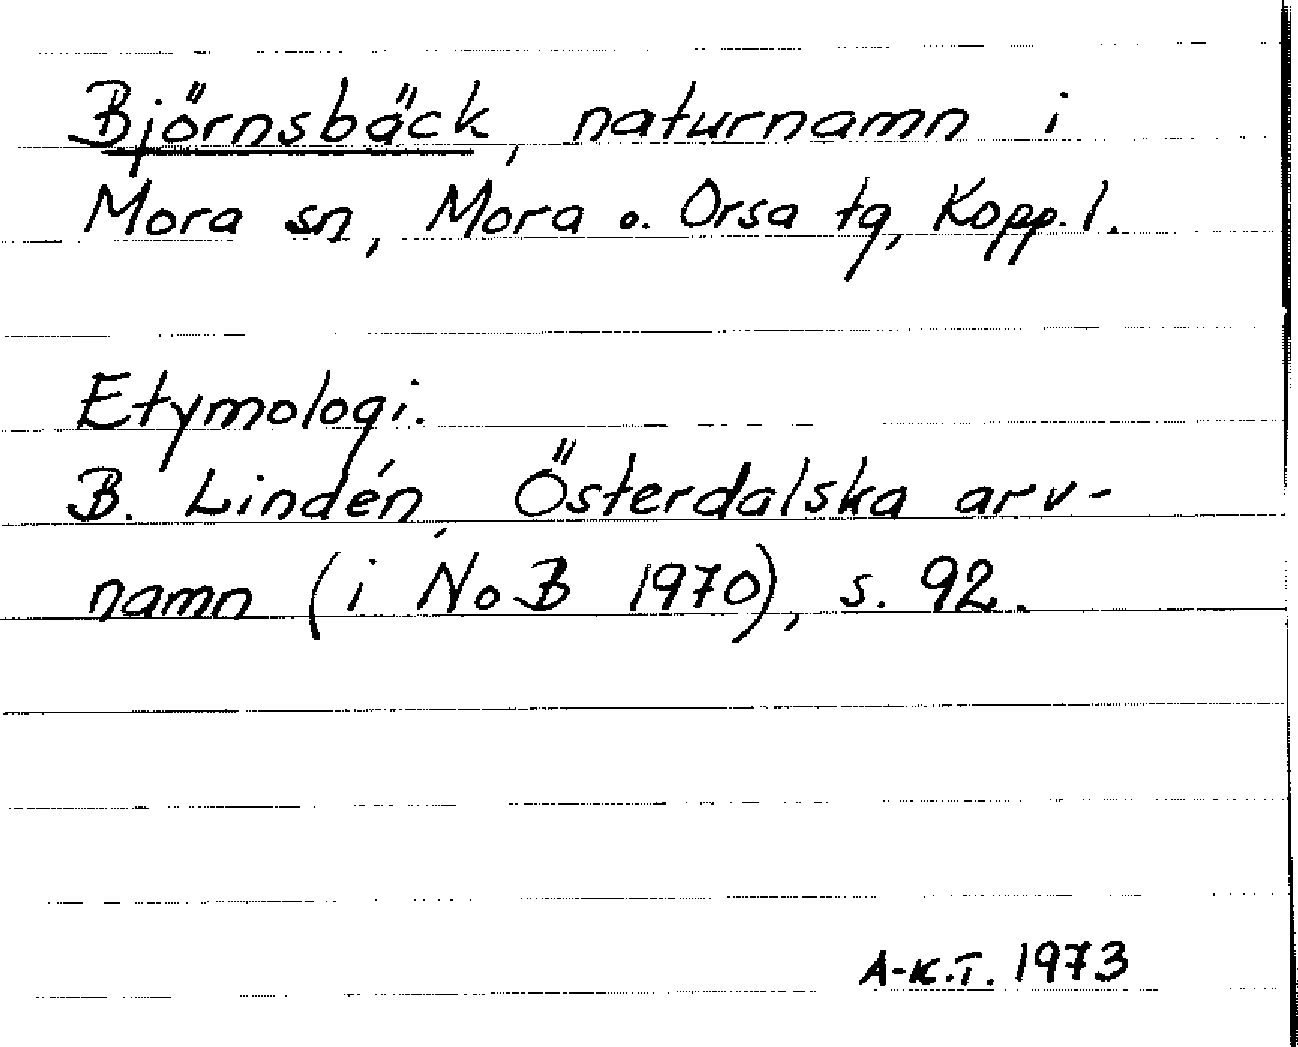 Björnsbäck, naturnamn i
Mora sn, Mora o. Orsa tg, Kopp. l.
Etymologi.
B. Lindén, Österdalska arv-
namn (i NoB 1970), s. 92.
A-K.T. 1973